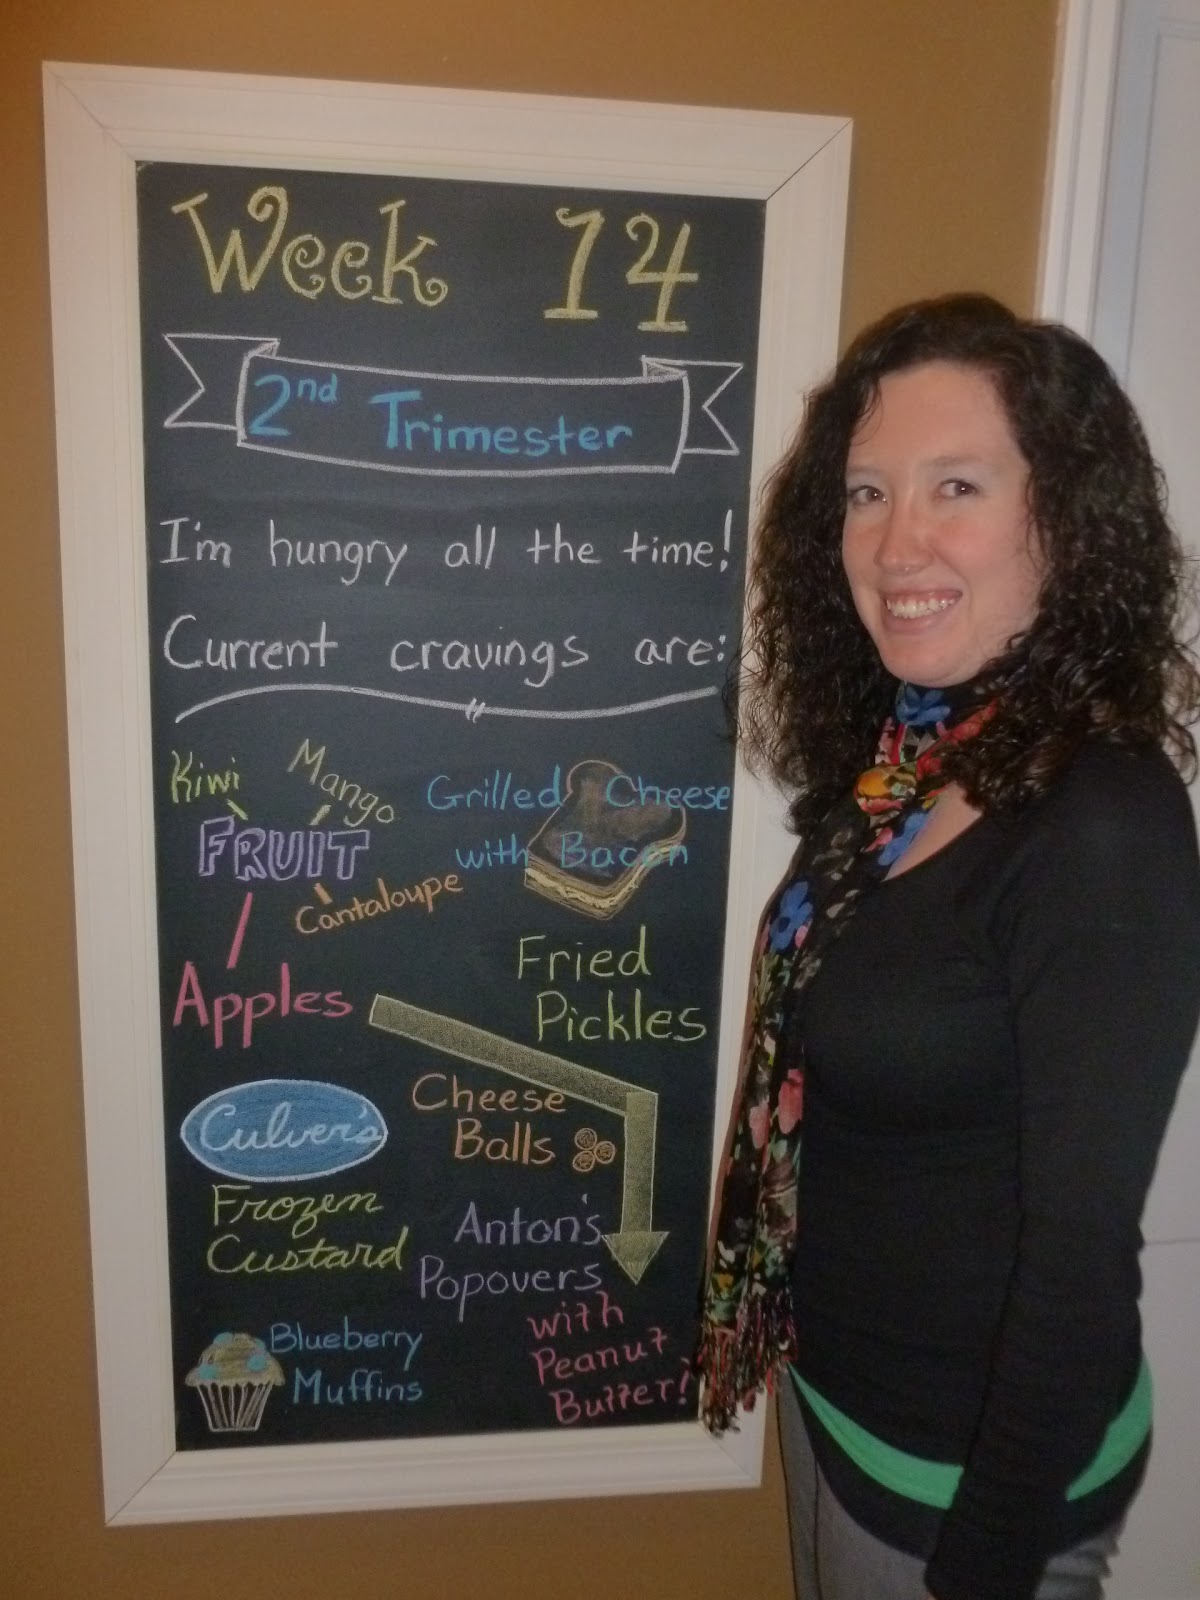 Week 14
2nd Trimester
I'm hungry all the time!
Current cravings are:
Kiwi
Mango
FRUIT
Cantaloupe
Apples
Grilled Cheese
with Bacon
Fried
Pickles
Cheese
Balls
Culver's
Frozen
Custard
Anton's
Popovers
Blueberry
Muffins
with
Peanut
Butter!